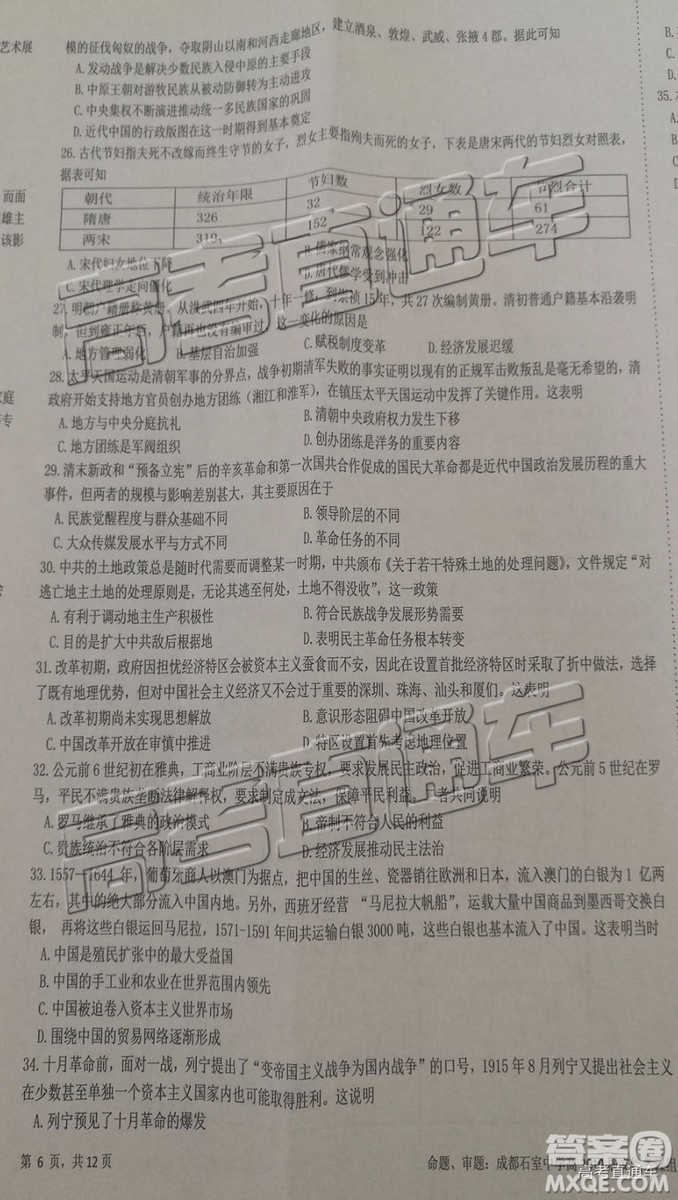 艺术展
模的征伐匈奴的战争，夺取阴山以南和河西走廊地区，建立酒泉、敦煌、武威、张掖4郡。据此可知
A.发动战争是解决少数民族入侵中原的主要手段
B.中原王朝对游牧民族从被动防御转为主动进攻
C.中央集权不断演进推动统一多民族国家的巩固
D.近代中国的行政版图在这一时期得到基本奠定
26.古代节妇指夫死不改嫁而终生守节的女子，烈女主要指殉夫而死的女子，下表是唐宋两代的节妇烈女对照表，
据表可知
朝代 统治年限 节妇数 烈女数 节烈合计
隋唐 326 32 29 61
两宋 319 152 122 274
A.宋代妇女地位下降 B.儒家纲常观念强化
C.宋代理学走向僵化 D.唐代儒学受到冲击
27.明朝户籍册称黄册。从洪武四年开始，十年一修，到崇祯15年，共27次编制黄册。清初普通户籍基本沿袭明
制，但到雍正年后，户籍再也没有编审过。这一变化的原因是
A.地方管理弱化 B.基层自治加强 C.赋税制度变革 D.经济发展迟缓
28.太平天国运动是清朝军事的分界点，战争初期清军失败的事实证明以现有的正规军击败叛乱是毫无希望的，清
政府开始支持地方官员创办地方团练（湘江和淮军），在镇压太平天国运动中发挥了关键作用。这表明
A.地方与中央分庭抗礼 B.清朝中央政府权力发生下移
C.地方团练是军阀组织 D.创办团练是洋务的重要内容
29.清末新政和“预备立宪”后的辛亥革命和第一次国共合作促成的国民大革命都是近代中国政治发展历程的重大
事件，但两者的规模与影响差别甚大，其主要原因在于
A.民族觉醒程度与群众基础不同 B.领导阶层的不同
C.大众传媒发展水平与方式不同 D.革命任务的不同
30.中共的土地政策总是随时代需要而调整某一时期，中共颁布《关于若干特殊土地的处理问题》，文件规定“对
逃亡地主土地的处理原则是，无论其逃至何处，土地不得没收”，这一政策
A.有利于调动地主生产积极性 B.符合民族战争发展形势需要
C.目的是扩大中共敌后根据地 D.表明民主革命任务根本转变
31.改革初期，政府因担忧经济特区会被资本主义蚕食而不安，因此在设置首批经济特区时采取了折中做法，选择
了既有地理优势，但对中国社会主义经济又不会过于重要的深圳、珠海、汕头和厦门。这表明
A.改革初期尚未实现思想解放 B.意识形态阻碍中国改革开放
C.中国改革开放在审慎中推进 D.特区设置首先考虑地理位置
32.公元前6世纪初在雅典，工商业阶层不满贵族专权，要求发展民主政治，促进工商业繁荣。公元前5世纪在罗
马，平民不满贵族垄断法律解释权，要求制定成文法，保障平民利益。二者共同说明
A.罗马继承了雅典的政治模式 B.帝制不符合人民的利益
C.贵族统治不符合各阶层需求 D.经济发展推动民主法治
33.1557-1644年，葡萄牙商人以澳门为据点，把中国的生丝、瓷器销往欧洲和日本，流入澳门的白银为1亿两
左右，其中的绝大部分流入中国内地。另外，西班牙经营“马尼拉大帆船”，运载大量中国商品到墨西哥交换白
银，再将这些白银运回马尼拉，1571-1591年间共运输白银3000吨，这些白银也基本流入了中国。这表明当时
A.中国是殖民扩张中的最大受益国
B.中国的手工业和农业在世界范围内领先
C.中国被迫卷入资本主义世界市场
D.围绕中国的贸易网络逐渐形成
34.十月革命前，面对一战，列宁提出了“变帝国主义战争为国内战争”的口号，1915年8月列宁又提出社会主义
在少数甚至单独一个资本主义国家内也可能取得胜利。这说明
A.列宁预见了十月革命的爆发
第6页，共12页
命题、审题：成都石室中学高
而面
雄主
该影
家庭
专
B.
C.
D.
35.
A.
B.
C.
D.
高考直通车
高考直通车
高考直通车
答案圈
MXQE.COM